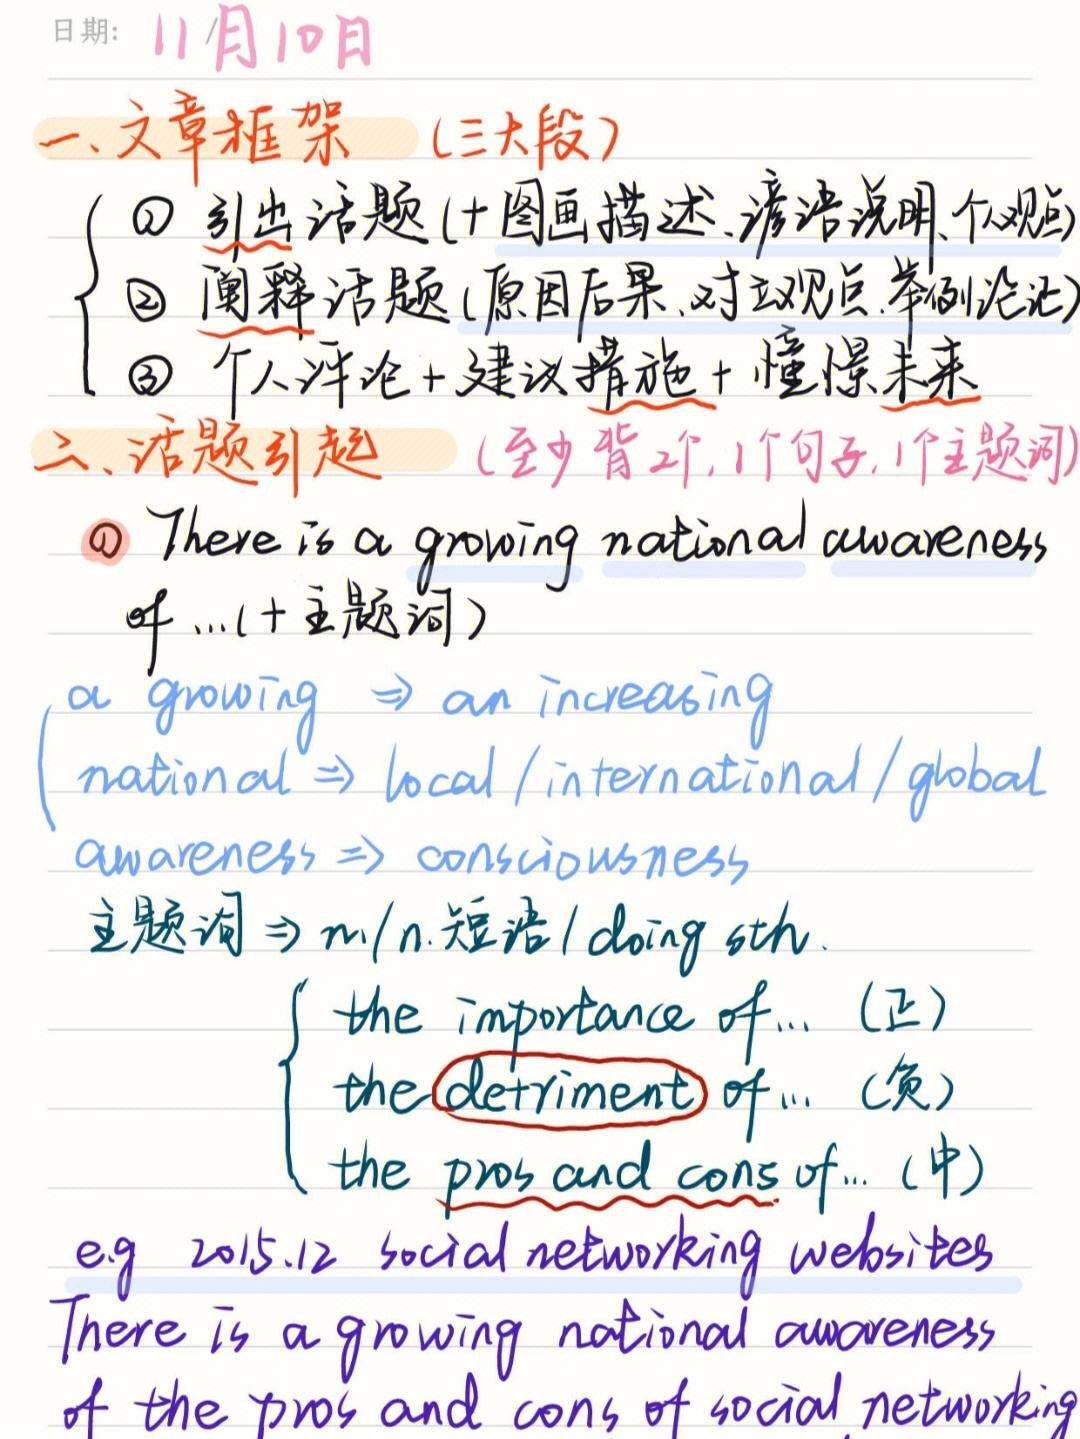 日期: 11/月10日
一、文章框架 (三大段)
① 引出话题(+图画描述、谚语说明、个人观点)
② 阐释话题(原因后果、对立观点、举例论证)
③ 个人评论+建议措施+憧憬未来
二、话题引起 (至少背2个,1个句子,1个主题词)
① There is a growing national awareness
of ...(+主题词)
a growing ⇒ an increasing
national ⇒ local/international/global
awareness ⇒ consciousness
主题词 ⇒ n./n.短语/doing sth.
the importance of... (正)
the detriment of... (负)
the pros and cons of... (中)
e.g 2015.12 social networking websites
There is a growing national awareness
of the pros and cons of social networking